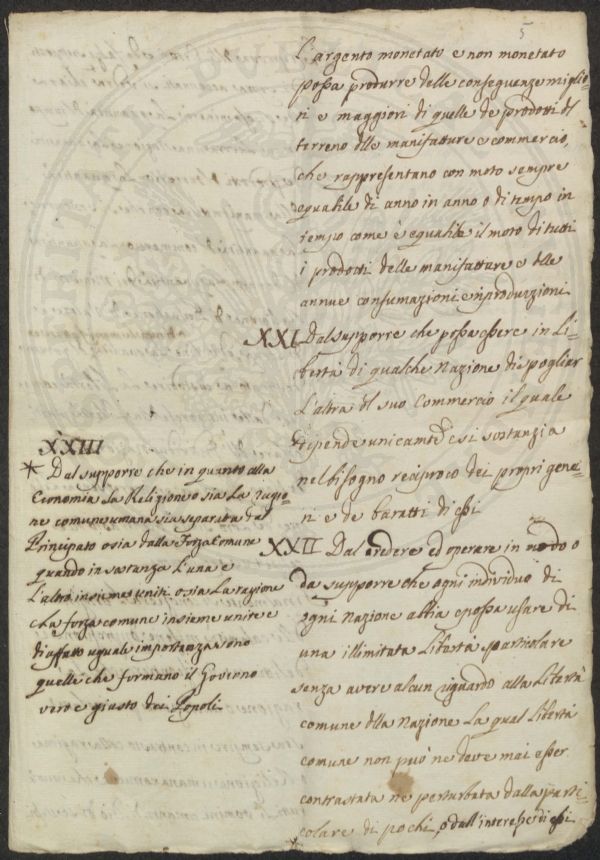 5
L'argento monetato e non monetato
possa produrre delle conseguenze miglio-
ri e maggiori di quelle de prodotti del
terreno delle manifatture e commercio,
che rappresentano con moto sempre
equabile di anno in anno o di tempo in
tempo come è equabile il moto di tutti
i prodotti delle manifatture e delle
annue consumazioni e riproduzioni
XXI Dal supporre che possa essere in Li-
bertà di qualche Nazione di spogliar
L'altra del suo Commercio il quale
dipende unicamte e si sostanzia
nel bisogno reciproco dei propri gene-
ri e de baratti di essi
XXII Dal credere ed operare in modo o
da supporre che ogni individuo di
ogni Nazione abbia e possa usare di
una illimitata Libertà particolare
senza avere alcun riguardo alla Libertà
comune della Nazione La qual Libertà
comune non può ne deve mai esser
contrastata ne perturbata dalla parti-
colare di pochi, o dall'interesse di essi
XXIII
* Dal supporre che in quanto alla
Economia la Religione o sia La ragio-
ne comune umana sia separata dal
Principato o sia dalla Forza Comune
quando in sostanza L'una e
L'altro insieme uniti o sia La ragione
e La forza comune insieme unite e
di affatto uguale importanza sono
quelle che formano il Governo
vero e giusto dei Popoli